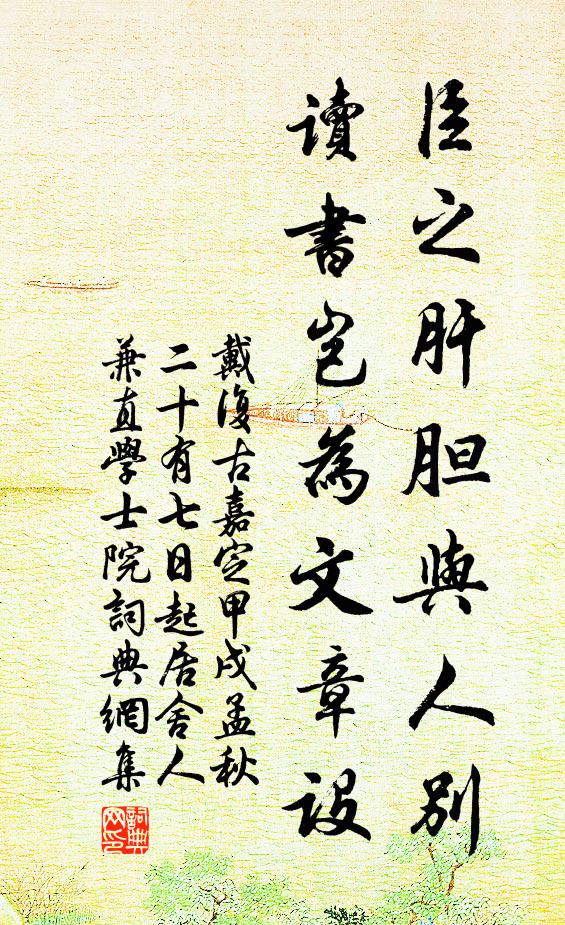 臣之肝胆與人別
讀書豈為文章設
戴復古嘉定甲戌孟秋
二十有七日起居舍人
兼直學士院詞典網集
詞典網印